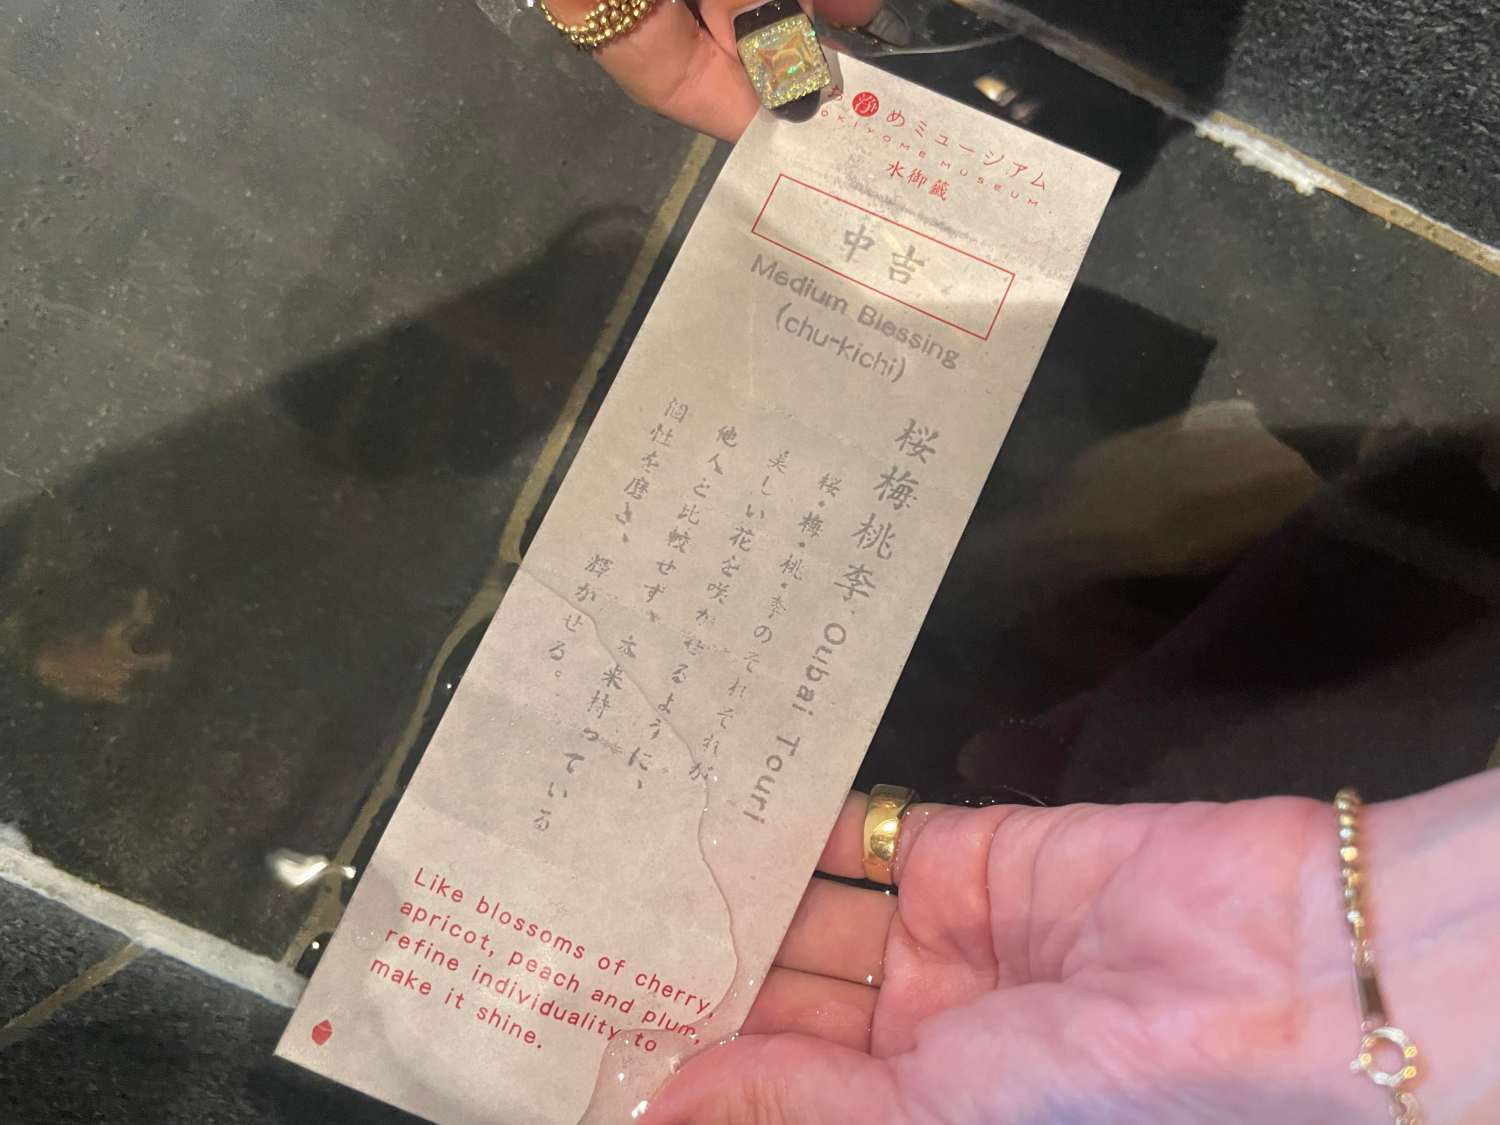 浄めミュージアム
OKIYOME MUSEUM.
水御籤
中吉
Medium Blessing
(chu-kichi)
桜梅桃李. Oubai Touri
桜・梅・桃・李のそれぞれが
美しい花を咲かせるように、
他人と比較せず、本来持っている
個性を磨き、輝かせる。
Like blossoms of cherry,
apricot, peach and plum,
refine individuality to
make it shine.